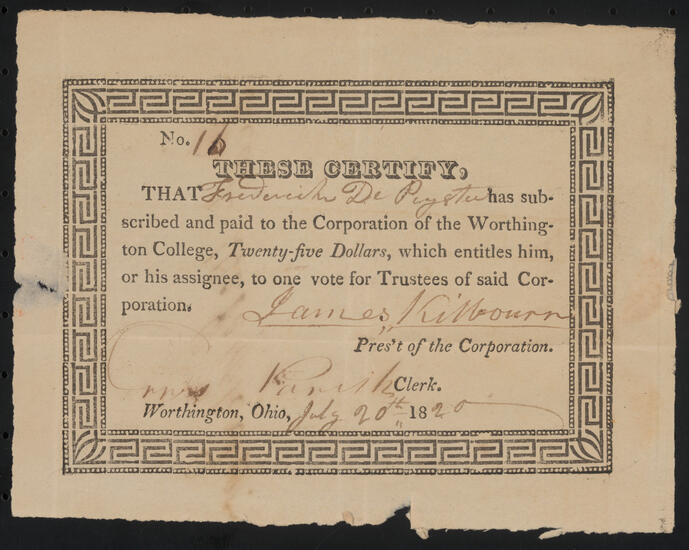 No. 16
THESE CERTIFY,
THAT Frederick De Peyster has sub-
scribed and paid to the Corporation of the Worthing-
ton College, Twenty-five Dollars, which entitles him,
or his assignee, to one vote for Trustees of said Cor-
poration.
James Kilbourn
Pres't of the Corporation.
Parish Clerk.
Worthington, Ohio, July 20th 1820